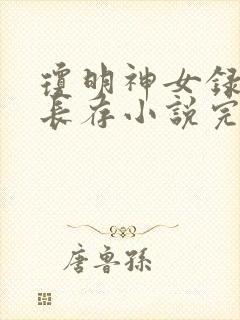 瓊明神女録
長存小說完
唐魯孫